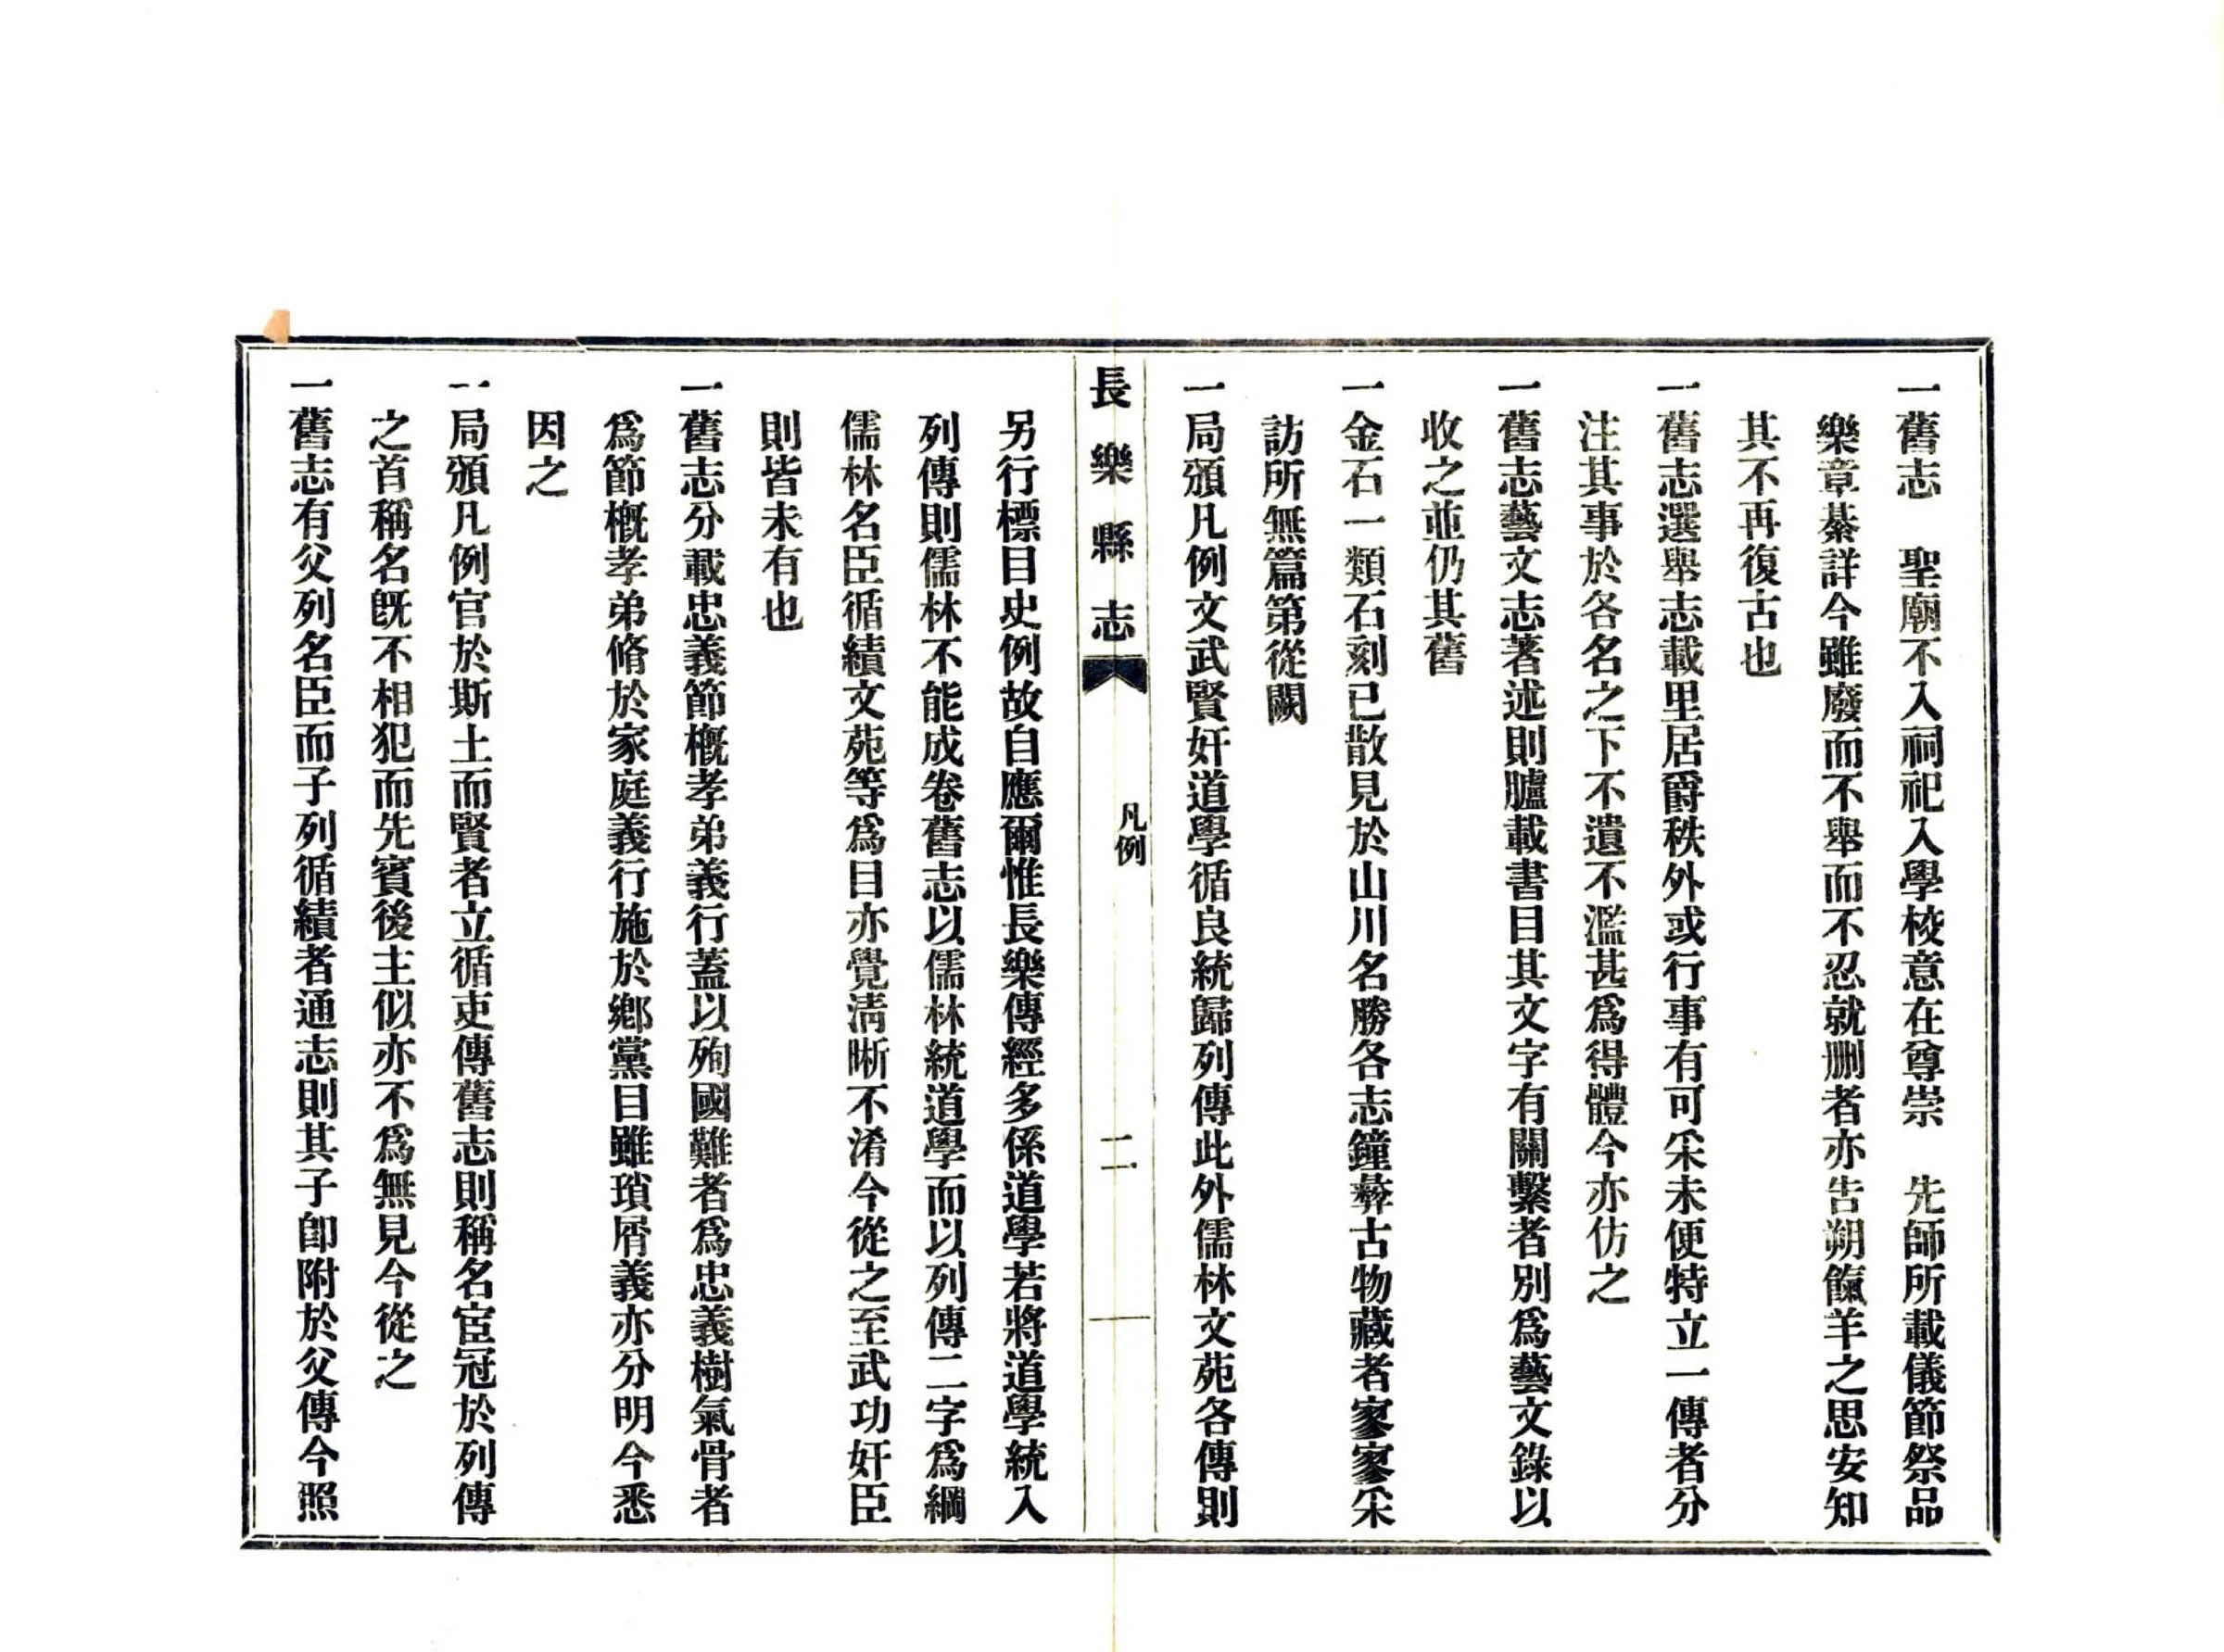 一舊志　聖廟不入祠祀入學校意在尊崇　先師所載儀節祭品
樂章綦詳今雖廢而不舉而不忍就删者亦告朔餼羊之思安知
其不再復古也
一舊志選舉志載里居爵秩外或行事有可采未便特立一傳者分
注其事於各名之下不遺不濫甚爲得體今亦仿之
一舊志藝文志著述則臚載書目其文字有關繫者別爲藝文錄以
收之並仍其舊
一金石一類石刻已散見於山川名勝各志鐘彜古物藏者寥寥采
訪所無篇第從闕
一局頒凡例文武賢奸道學循良統歸列傳此外儒林文苑各傳則
長樂縣志
凡例
二
另行標目史例故自應爾惟長樂傳經多係道學若將道學統入
列傳則儒林不能成卷舊志以儒林統道學而以列傳二字爲綱
儒林名臣循績文苑等爲目亦覺淸晰不淆今從之至武功奸臣
則皆未有也
一舊志分載忠義節槪孝弟義行蓋以殉國難者爲忠義樹氣骨者
爲節槪孝弟脩於家庭義行施於鄕黨目雖瑣屑義亦分明今悉
因之
一局頒凡例官於斯土而賢者立循吏傳舊志則稱名宦冠於列傳
之首稱名旣不相犯而先賓後主似亦不爲無見今從之
一舊志有父列名臣而子列循績者通志則其子卽附於父傳今照